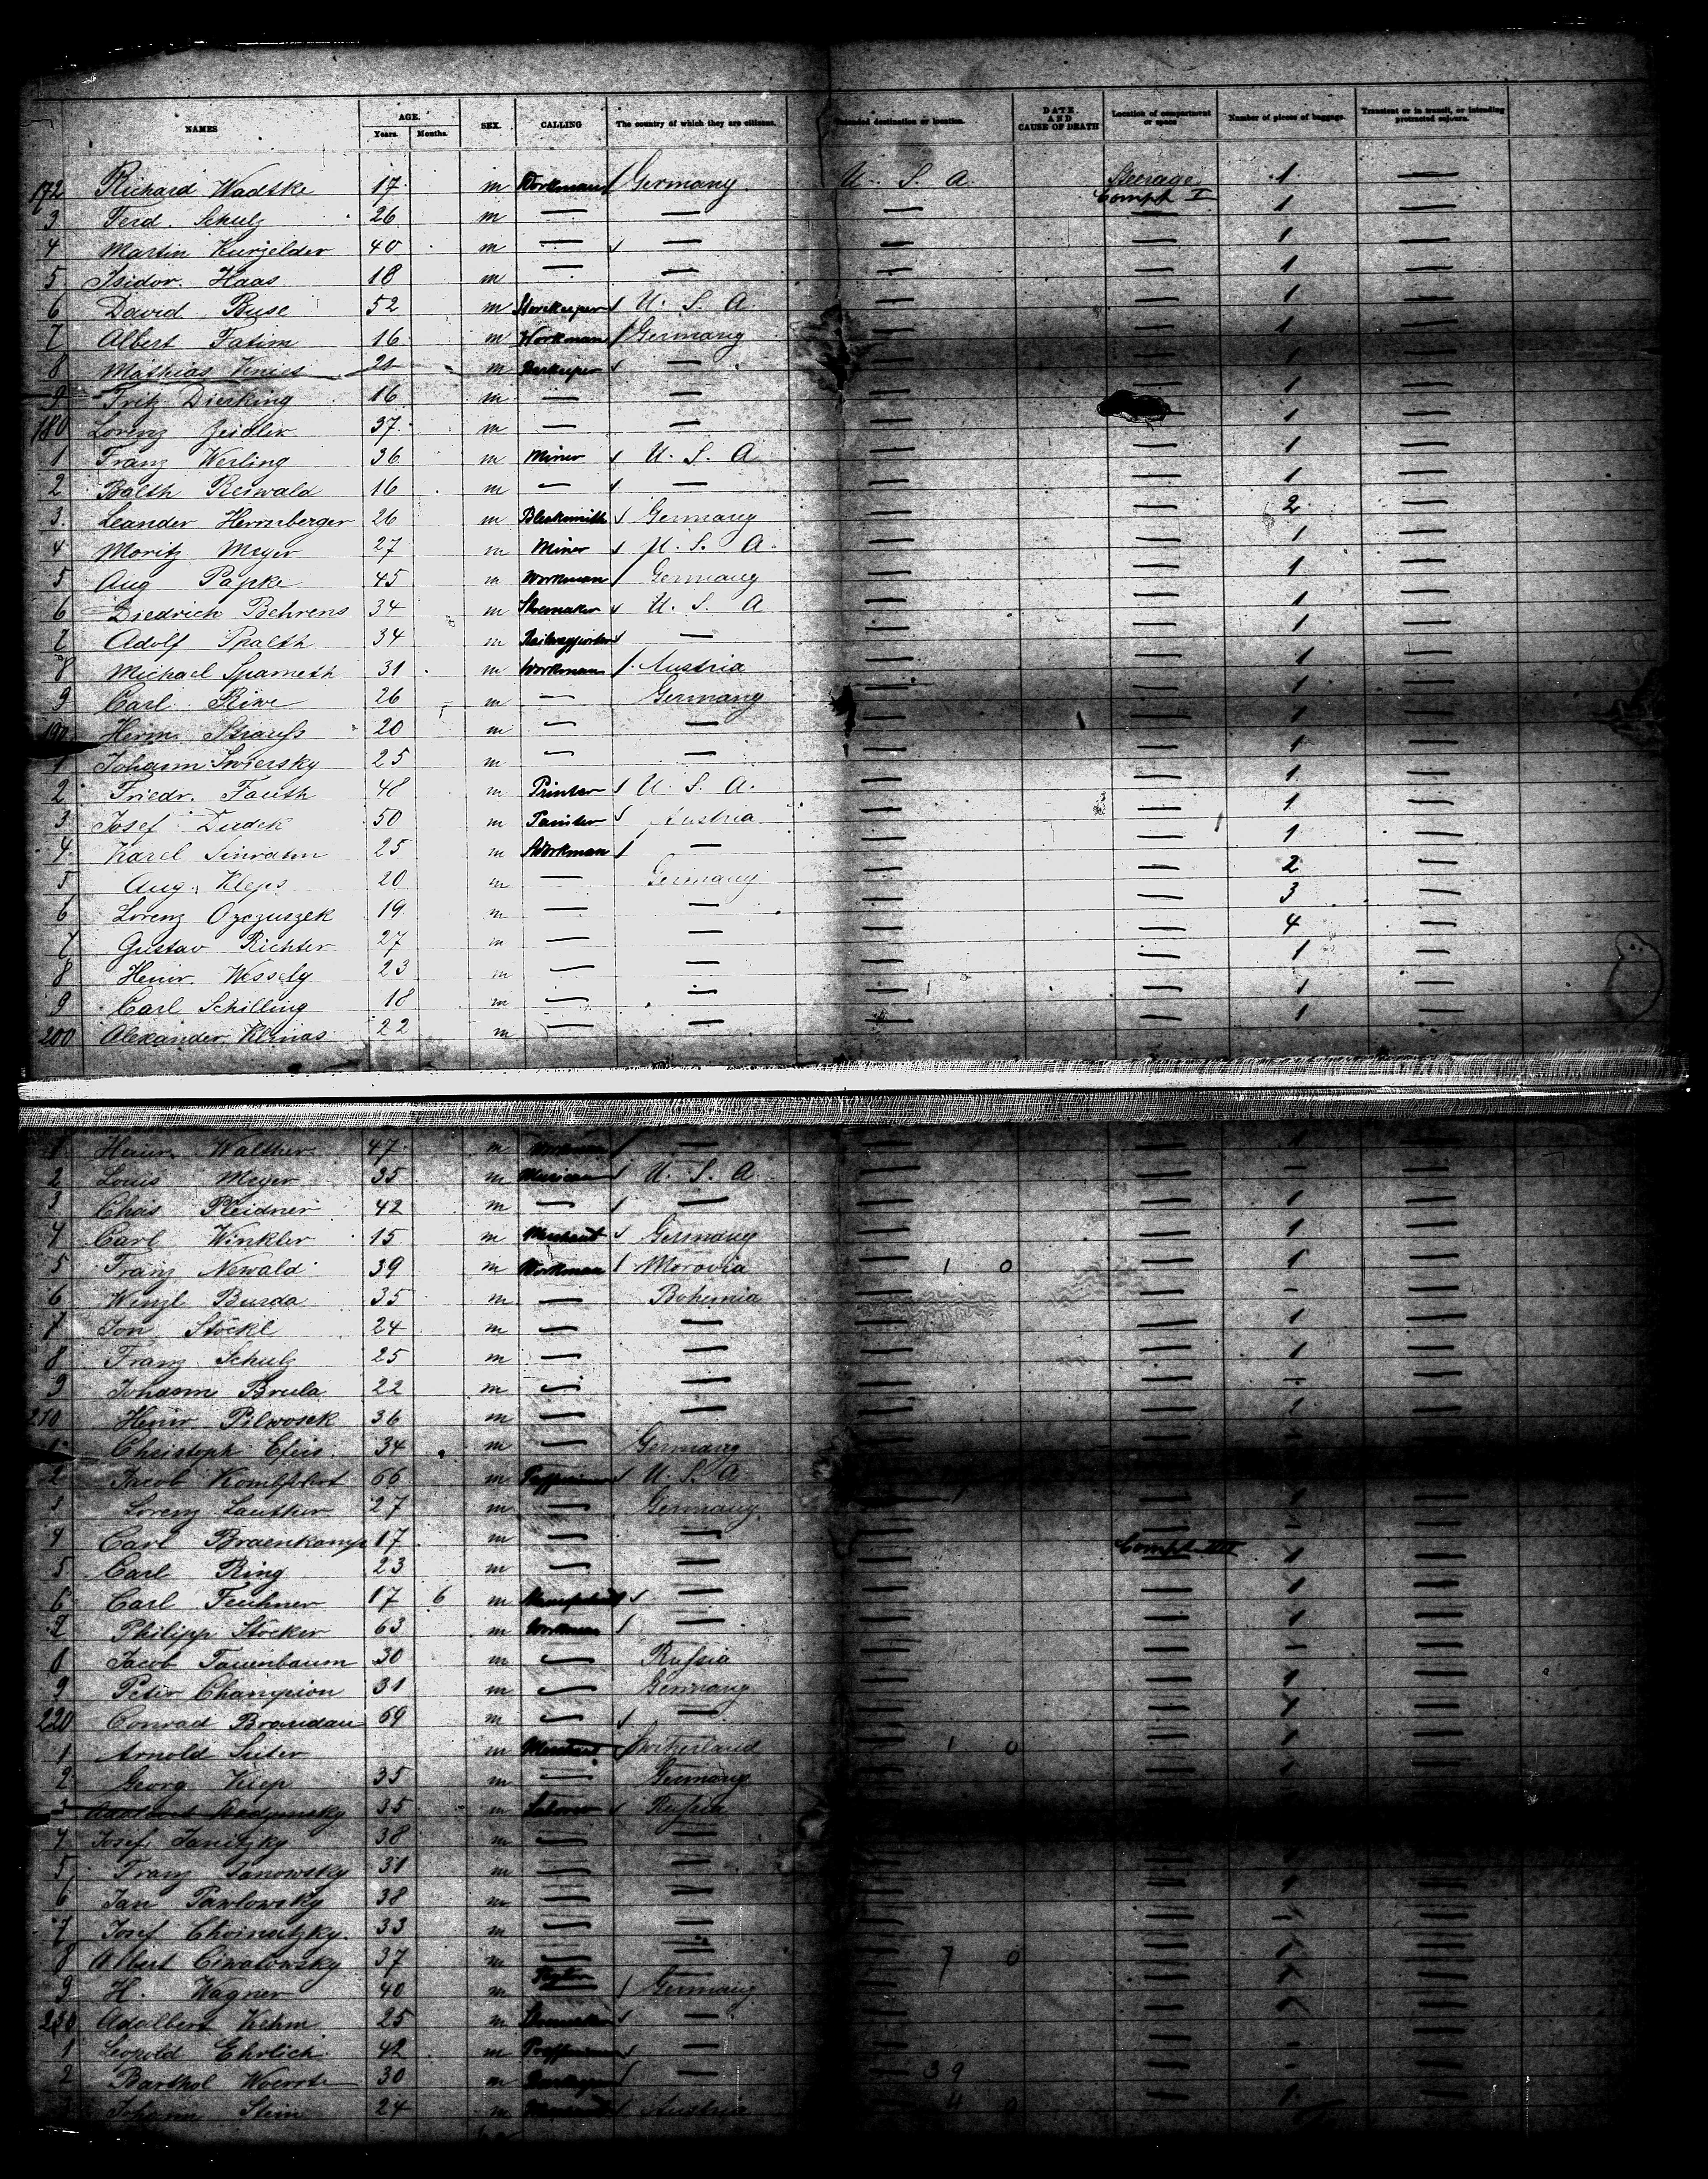 NAMES AGE. Years. Months. SEX. CALLING The country of which they are citizens. Intended destination or location. DATE AND CAUSE OF DEATH Location of compartment or space Number of pieces of baggage. Transient or in transit, or intending protracted sojourn.
172 Richard Wadtke 17 m Workman Germany U. S. A. Steerage Compt I 1 —
3 Ferd. Schulz 26 m — — — — 1 —
4 Martin Kurzelder 40 m — — — — 1 —
5 Isidor Haas 18 m — — — — 1 —
6 David Buse 52 m Storekeeper U. S. A — — 1 —
7 Albert Fatim 16 m Workman Germany — — 1 —
8 Mathias Kinies m Barkeeper — — — 1 —
9 Fritz Dierking 16 m — — — — 1 —
180 Lorenz Zeidler 37 m — — — — 1 —
1 Franz Werling 36 m Miner U. S. A — — 1 —
2 Balth Reiwald 16 m — — — — 1 —
3 Leander Herrnberger 26 m Blacksmith Germany — — 2 —
4 Moritz Meyer 27 m Miner U. S. A. — — 1 —
5 Aug Papke 45 m Workman Germany — — 1 —
6 Diedrich Behrens 34 m Shoemaker U. S. A — — 1 —
7 Adolf Spalth 34 m — — — 1 —
8 Michael Spameth 31 m Workman Austria — — 1 —
9 Carl Riwe 26 m — Germany — — 1 —
190 Herm. Strauss 20 m — — — — 1 —
1 Johann Swiersky 25 m — — — — 1 —
2 Friedr. Fauth 48 m Printer U. S. A. — — 1 —
3 Josef Dudek 50 m Painter Austria — — 1 —
4 Karel 25 m Workman — — — 1 —
5 Aug. Kleps 20 m — Germany — — 2 —
6 Lorenz Ozczuszek 19 m — — — — 3 —
7 Gustav Richter 27 m — — — — 4 —
8 Heinr. Wessely 23 m — — — — 1 —
9 Carl Schilling 18 m — — — — 1 —
200 Alexander Klimas 22 m — — — — 1 —
1 Heinr. Walther 47 m Workman — — — 1 —
2 Louis Meyer 35 m Musician U. S. A — — — —
3 Chas Reidner 42 m — — — — 1 —
4 Carl Winkler 15 m Merchant Germany — — 1 —
5 Franz Newald 39 m Workman Moravia — 1 0 — 1 —
6 Wenzl Burda 35 m — Bohemia — — — —
7 Jon Stöckl 24 m — — — — 1 —
8 Franz Schulz 25 m — — — — 1 —
9 Johann Brula 22 m — — — — — —
210 Heinr Pilwosek 36 m — — — — 1 —
1 Christoph 34 m — Germany — — —
2 Jacob 66 m U. S. A —
3 Lorenz Lauther 27 m — Germany — — 1 —
4 Carl Braenkamp 17 m — — — — — —
5 Carl Ring 23 m — — — Compt III 1 —
6 Carl Feuhner 17 6 m — — — 1 —
7 Philipp Stocker 63 m Workman — — — 1 —
8 Jacob Tauenbaum 30 m — Russia — — — —
9 Peter Champion 31 m — Germany — — 1 —
220 Conrad Brandau 69 m — — — — 1 —
1 Arnold Suter m Merchant Switzerland — 1 0 — 1 —
2 Georg Kiep 35 m — Germany — — 1 —
3 35 m Labourer Russia
4 Josef Janitzky 38 m — —
5 Franz Janowsky 31 m — — — — —
6 Jan Pawlowsky 38 m — — — — 1 —
7 Josef Choinatzky 33 m — — — — — —
8 Albert Ciwalowsky 37 m — — — 7 0 — 1 —
9 H. Wagner 40 m Germany — — 1 —
230 Adalbert Kehm 25 m Shoemaker — —
1 Leopold Ehrlich 42 m — — — — —
2 Barthol Woerrte 30 m — — 39 — — —
3 Johann Stein 24 m Austria — 4 0 — 1 —